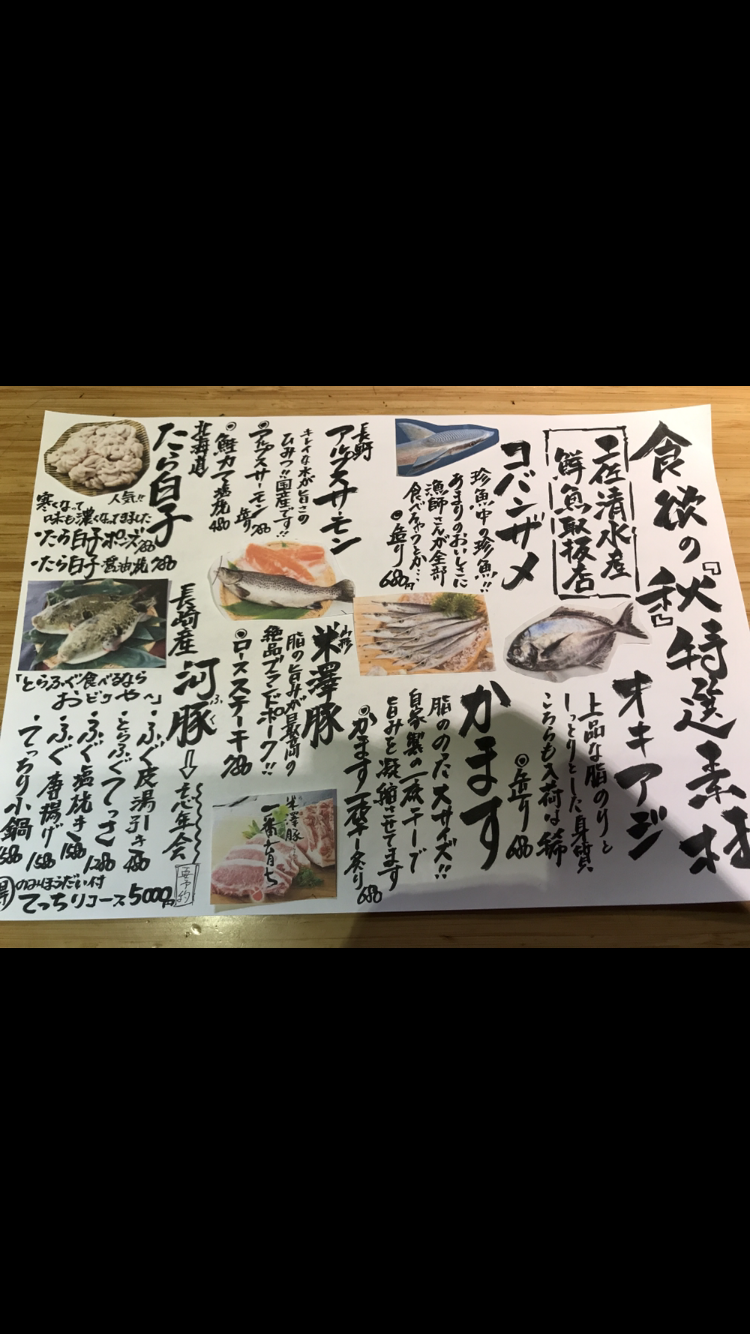 食欲の『秋』特選素材
土佐清水産
鮮魚取扱店
オキアジ
上品な脂のりと
しっとりとした身質
こちらも入荷は稀
◎造り 680
コバンザメ
珍魚中の珍魚!!
あまりのおいしさに
漁師さんが全部
食べちゃうとか…
◎造り 680円
かます
脂ののった大サイズ!!
自家製の一夜干しで
旨みを凝縮させてます
◎かます一夜干し炙り 680
長野
アルプスサーモン
キレイな水が旨さの
ひみつ!!国産です!!
◎アルプスサーモン造り 780
◎鮭カマ塩焼 480
山形
米澤豚
脂の旨みが最高の
絶品ブランドポーク!!
◎ロースステーキ 780
米澤豚
一番育ち
北海道
たら白子
人気!!
寒くなって
味も濃くなってきました
・たら白子ポン酢
・たら白子醤油焼 780
長崎産
河豚
ふぐ
⇒忘年会
要予約
「とらふぐ食べるなら
おビリや〜」
・ふぐ皮湯引き 480
・とらふぐてっさ 1280
・ふぐ塩焼き 1580
・ふぐ唐揚げ 1580
・てっちり小鍋 1580
のみほうだい付
てっちりコース5000円